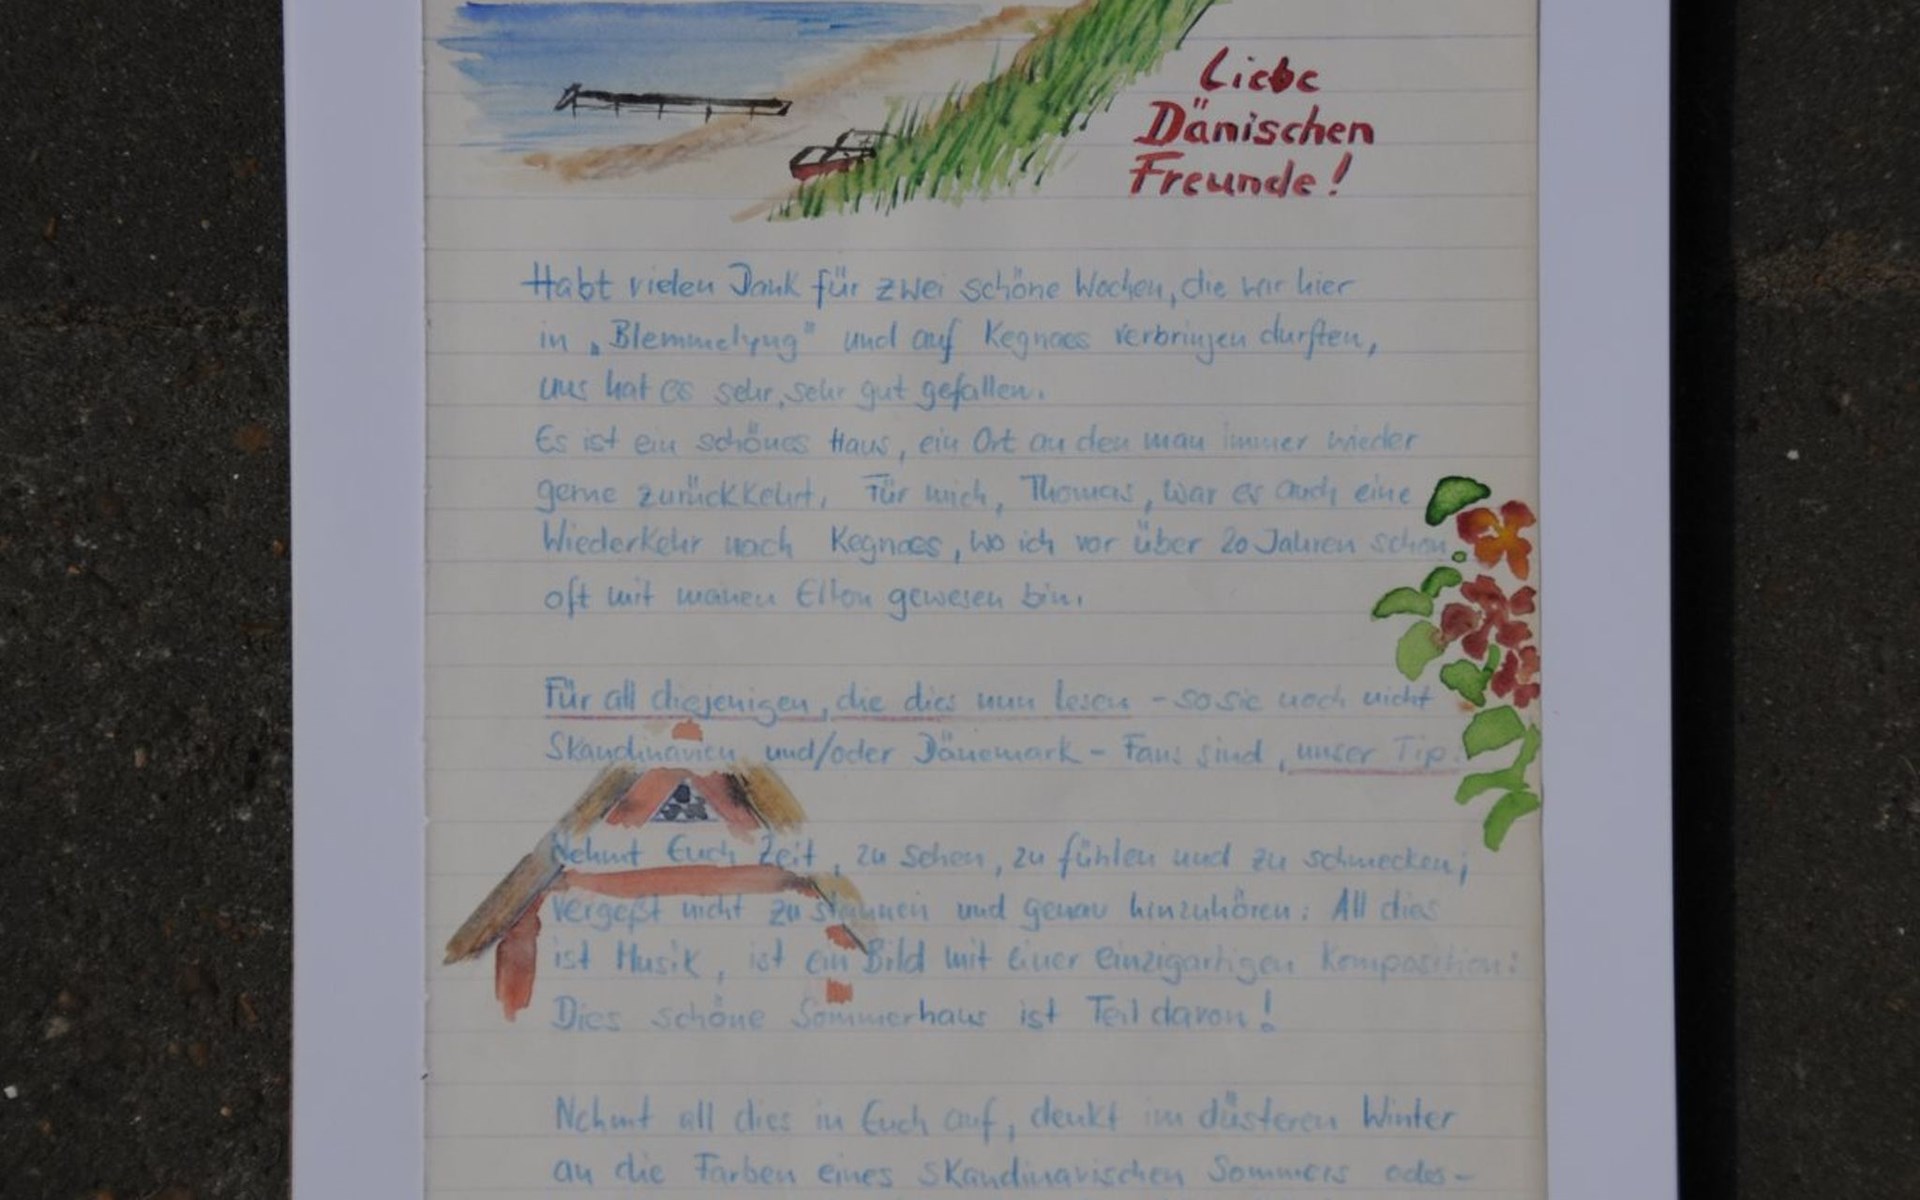 Liebe
Dänischen
Freunde!
Habt vielen Dank für zwei schöne Wochen, die wir hier
in „Blemmelyng" und auf Kegnaes verbringen durften,
uns hat es sehr, sehr gut gefallen.
Es ist ein schönes Haus, ein Ort an den man immer wieder
gerne zurückkehrt. Für mich, Thomas, war es auch eine
Wiederkehr nach Kegnaes, wo ich vor über 20 Jahren schon
oft mit meinen Eltern gewesen bin.
Für all diejenigen, die dies nun lesen - so sie noch nicht
Skandinavien und/oder Dänemark - Fans sind, unser Tip:
Nehmt Euch Zeit, zu sehen, zu fühlen und zu schmecken;
vergeßt nicht zu staunen und genau hinzuhören: All dies
ist Musik, ist ein Bild mit einer einzigartigen Komposition:
Dies schöne Sommerhaus ist Teil davon!
Nehmt all dies in Euch auf, denkt im düsteren Winter
an die Farben eines skandinavischen Sommers oder-